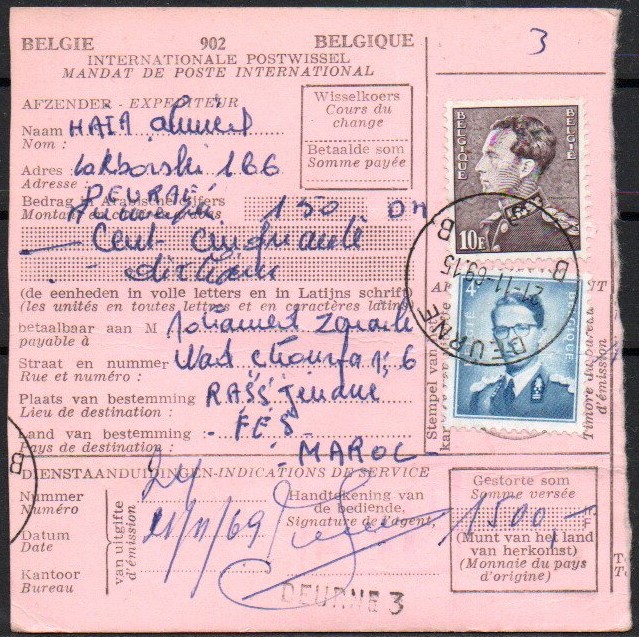 BELGIE 902 BELGIQUE
3
INTERNATIONALE POSTWISSEL
MANDAT DE POSTE INTERNATIONAL
AFZENDER - EXPEDITEUR
Wisselkoers
Cours du
change
Naam HAIA
Nom :
Betaalde som
Somme payée
Adres 166
Adresse :
DEURNE
Bedrag in Arabische cijfers
Montant en chiffres 150 DH
Cent cinquante
dirham
(de eenheden in volle letters en in Latijns schrift)
(les unités en toutes lettres et en caractères latins)
betaalbaar aan M Mohamed
payable à
Straat en nummer 6
Rue et numéro :
Plaats van bestemming RASS
Lieu de destination :
Land van bestemming - FES
Pays de destination :
- MAROC -
BELGIQUE BELGIE
10F
4F
BELGIQUE
DEURNE
21-11-69.15
B B
Stempel van
Timbre du bureau
d'émission
B
DIENSTAANDUIDINGEN-INDICATIONS DE SERVICE
Nummer 24
Numéro
Datum 21/11/69
Date
Kantoor
Bureau
van uitgifte
d'émission
Handtekening van
de bediende,
Signature de l'agent,
Gestorte som
Somme versée
1500,- F
(Munt van het land
van herkomst)
(Monnaie du pays
d'origine)
DEURNE 3